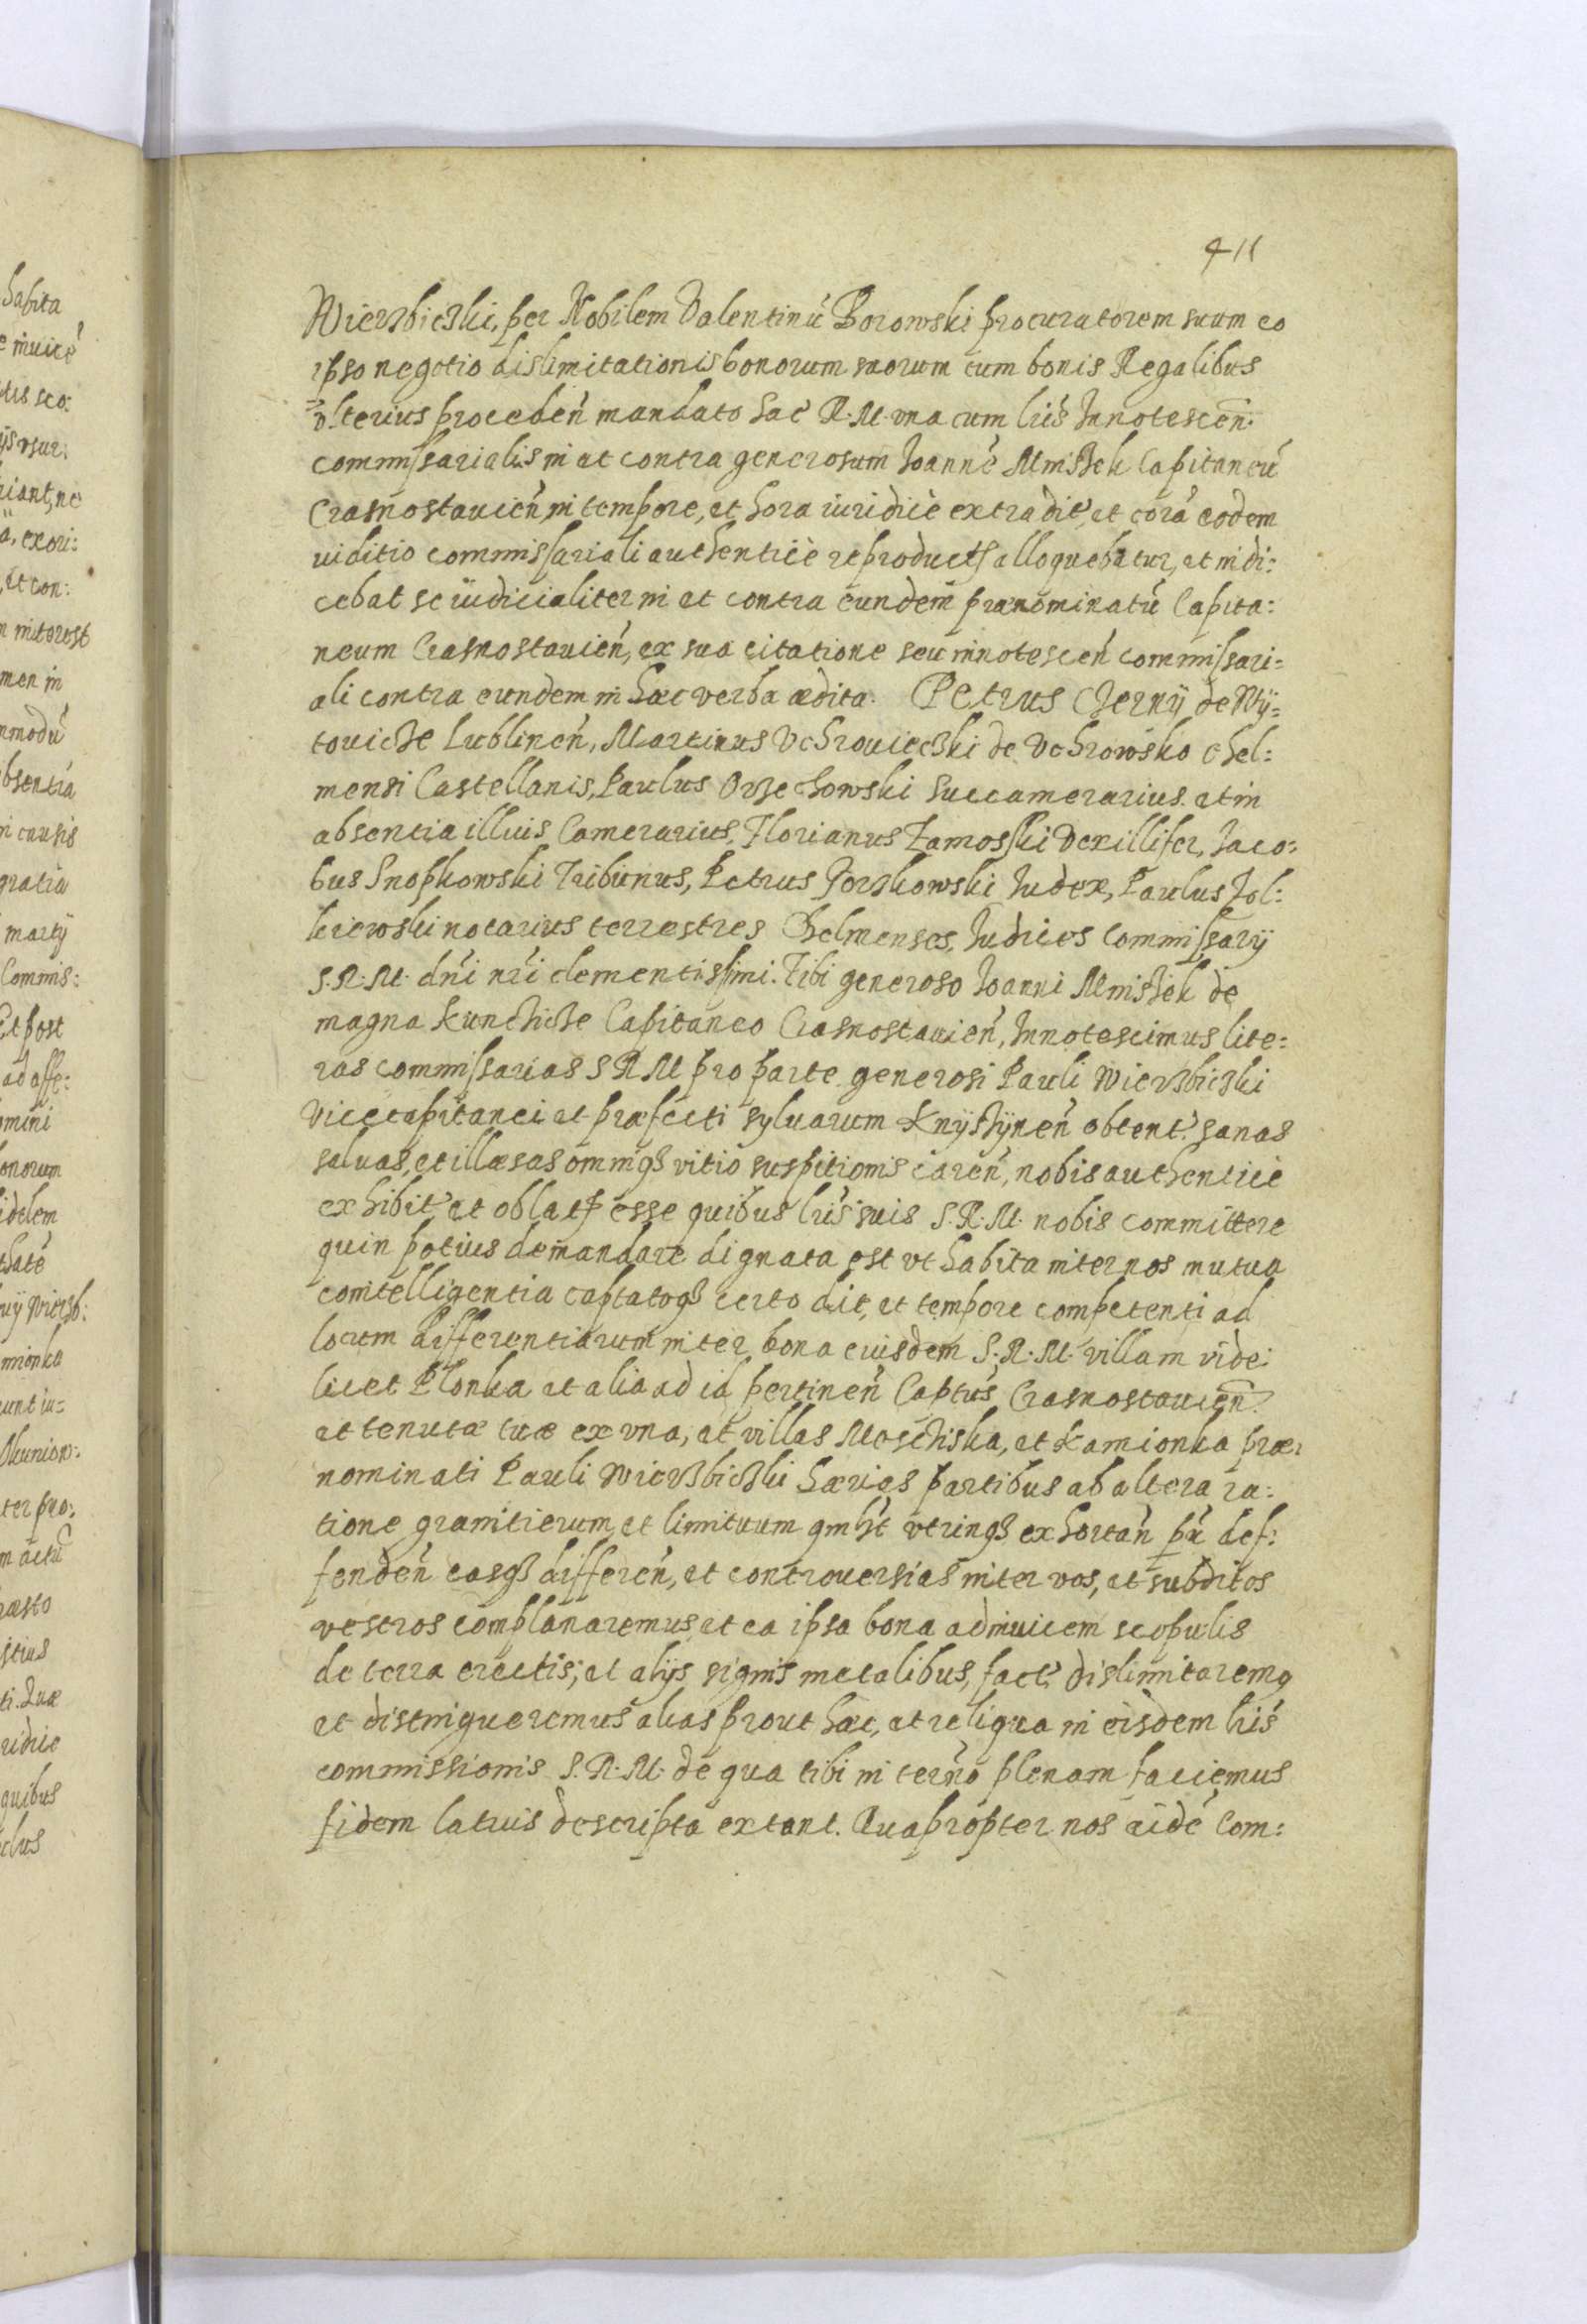 411
Wierzbiczki, per Nobilem Valentinū Borowski procuratorem suum eo
ipso negotio dislimitationis bonorum suorum cum bonis Regalibus
vlterius proceden̄ mandato Sac̄ R. M. vna cum lr̄is Innotescen̄.
commissarialis in et contra generosum Ioannē Mnisßek Capitaneū
Crasnostauien̄, in tempore, et hora iuridicè extradit', et corā eodem
iuditio commissariali authenticè reproduct' alloquebatur, et indi:
cebat se iudicialiter in et contra eundem prænominatū Capita:
neum Crasnostauien̄, ex sua citatione seu innotescen̄ commissari:
ali contra eundem in hæc verba ædita. Petrus Czernÿ de Wÿ:
towicze Lublinen̄, Martinus Vchrowieczki de Vchrowsko Chel:
mensi Castellanis, Paulus Orzechowski Succamerarius et in
absentia illius Camerarius, Florianus Zamosski Vexillifer, Iaco:
bus Snopkowski Tribunus, Petrus Gorzkowski Iudex, Paulus Zol:
kiewski notarius terrestres Chelmenses, Iudices Commissarÿ
S. R. M. dn̄i nr̄i clementissimi. Tibi generoso Ioanni Mnisßek de
magna Kunchicze Capitaneo Crasnostauien̄, Innotescimus lite:
ras commissarias S R M pro parte generosi Pauli Wierzbiczki
Vicecapitanei et præfecti syluarum Knÿsßÿnen̄ obtent' sanas
saluas, et illæsas omniq3 vitio suspitionis caren̄, nobis authenticè
exhibit' et oblat' esse quibus lr̄is suis S. R. M. nobis committere
quin potius demandare dignata est vt habita inter nos mutua
cointelligentia captatoq3 certo die, et tempore competenti ad
locum differentiarum inter bona eiusdem S. R. M. villam vide:
licet Plonka et alia ad id pertinen̄ Captūs Crasnostauien̄
et tenutæ tuæ ex vna, et villas Moschiska, et Kamionka præ:
nominati Pauli Wierzbiczki hæriās partibus ab altera ra:
tione granitierum, et limituum qm̄lt vtrinq3 exhortan̄ pr̄ def:
fenden̄ easq3 differen̄, et controuersias inter vos, et subditos
vestros complanaremus, et ea ipsa bona adinuicem scopulis
de terra erectis, et alijs signis metalibus, fact' dislimitaremq
et distingueremus alias prout hæc, et reliqua in eisdem lr̄is
commissionis S. R. M. de qua tibi in termn̄o plenam faciemus
fidem latius descripta extant. Quapropter nos eidē Com: